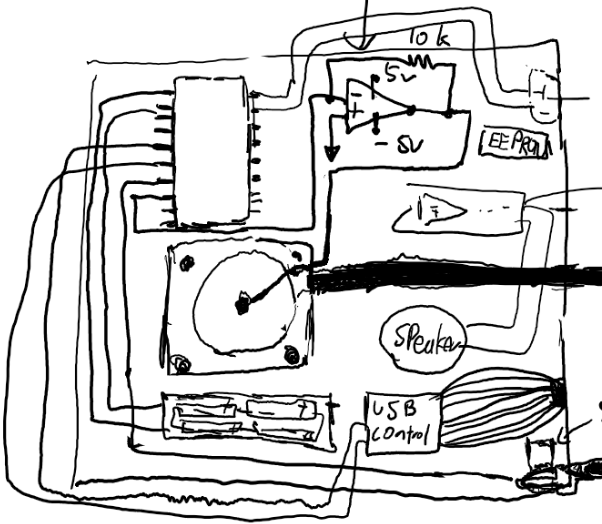 10k
5v
-
+
-5v
EEPROM
Speaker
USB
control